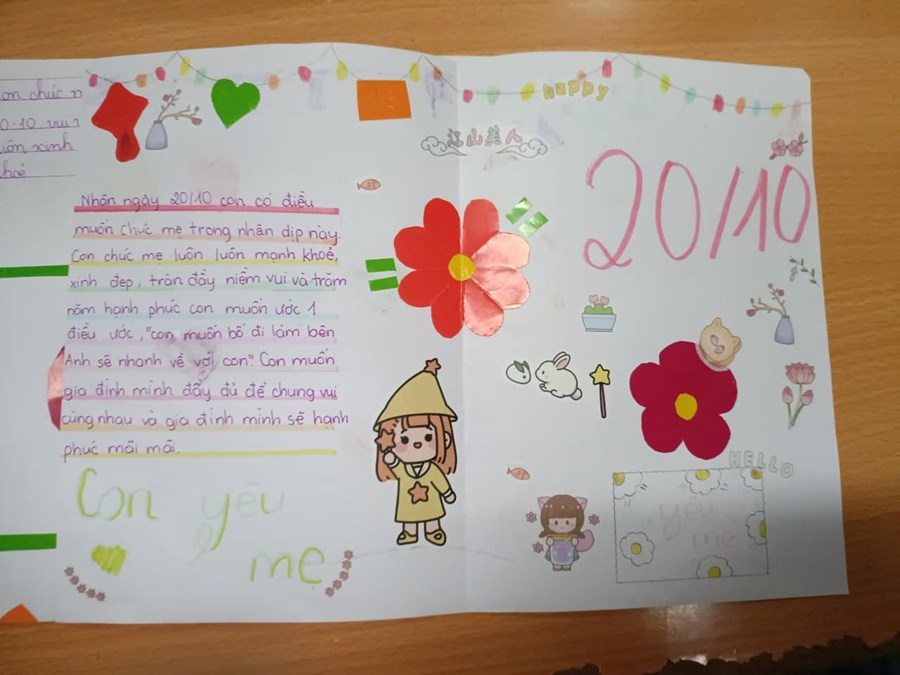 con chúc
0-10 vui
xinh
khoẻ
happy
江山美人
20/10
Nhân ngày 20/10 con có điều
muốn chúc mẹ trong nhân dịp này.
Con chúc mẹ luôn luôn mạnh khoẻ,
xinh đẹp, tràn đầy niềm vui và trăm
năm hạnh phúc con muốn ước 1
điều ước, "con muốn bố đi làm bên
Anh sẽ nhanh về với con". Con muốn
gia đình mình đầy đủ để chung vui
cùng nhau và gia đình mình sẽ hạnh
phúc mãi mãi.
Con yêu
mẹ
HELLO
yêu
mẹ